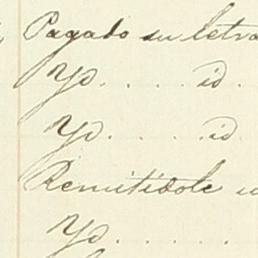 Pagado su letra
Yd. . . . id.
Yd. . . . id
Remitidole
Yd. . . . . .